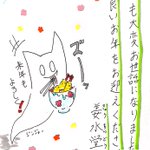 も大変お世話になりました
良いお年をお迎えくださ
姜水堂
ズーッ
来年も
よろしく